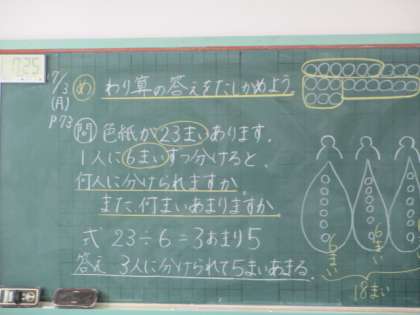 7/3
(月)
P73
め わり算の答えをたしかめよう。
問 色紙が23まいあります。
1人に6まいずつ分けると、
何人に分けられますか。
また、何まいあまりますか。
式 23÷6=3あまり5
答え 3人に分けられて5まいあまる。
6まい
6まい
18まい